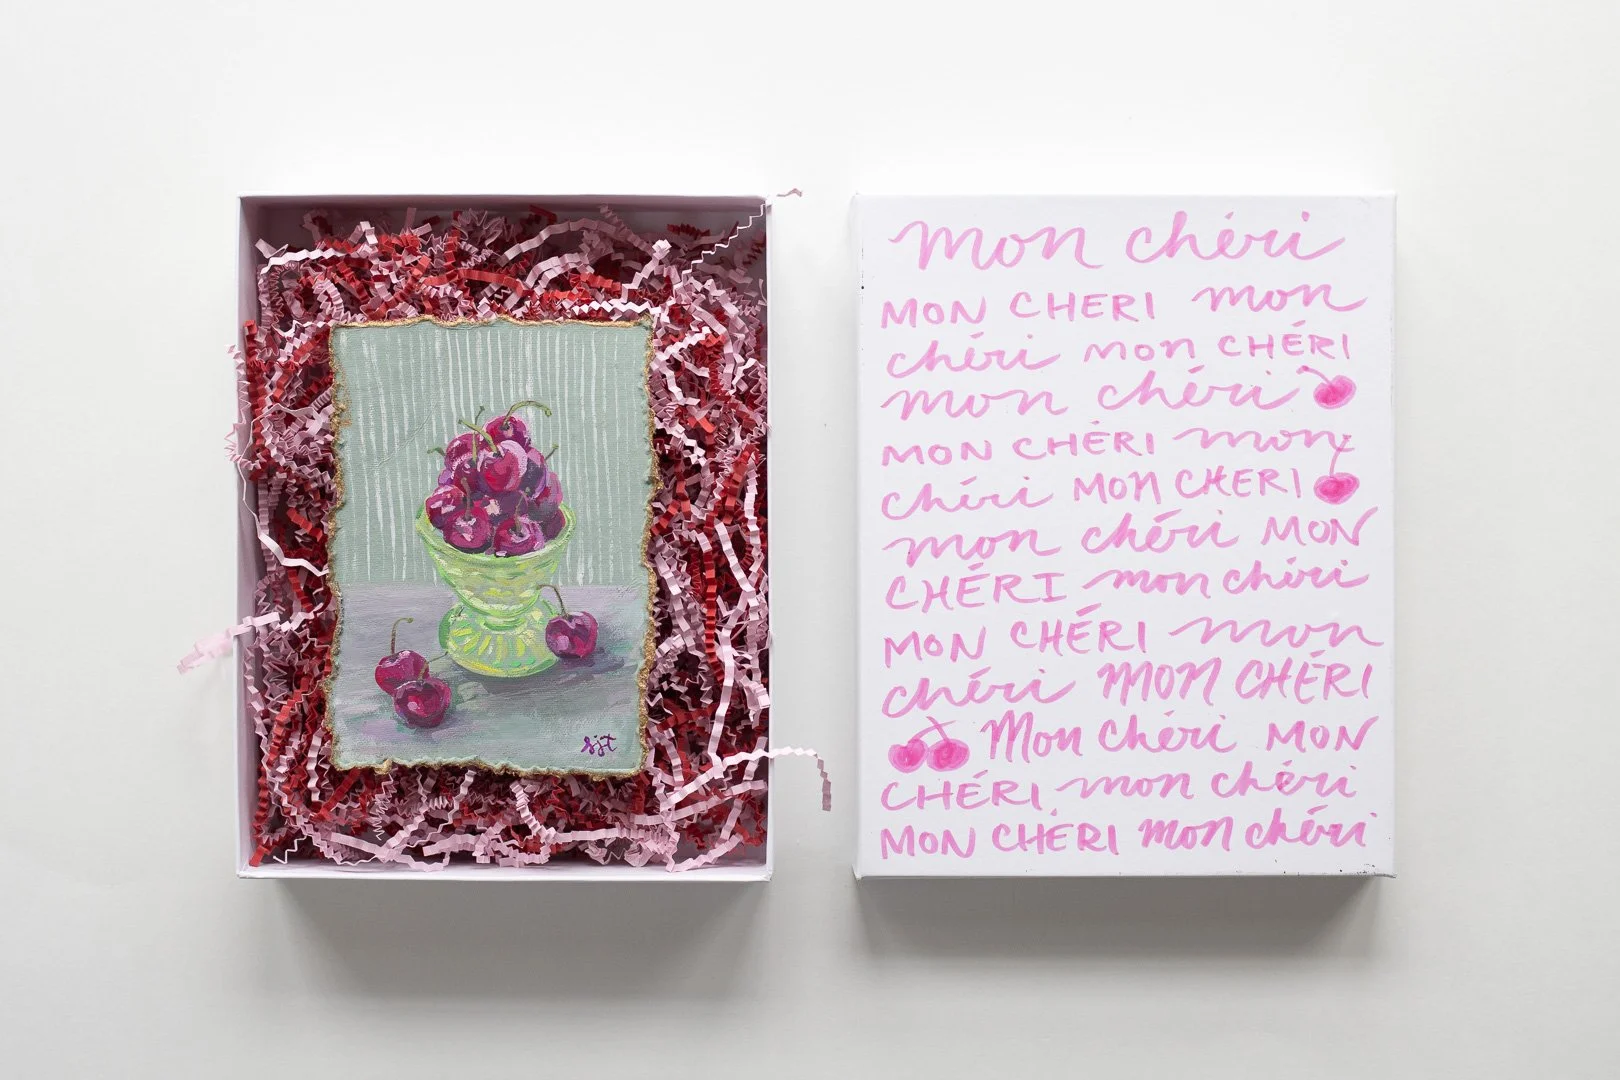 sjt
mon chéri
MON CHERI mon
chéri MON CHÉRI
mon chéri
MON CHÉRI mon
chéri MON CHERI
mon chéri MON
CHÉRI mon chéri
MON CHÉRI mon
chéri MON CHÉRI
Mon chéri MON
CHÉRI mon chéri
MON CHÉRI mon chéri